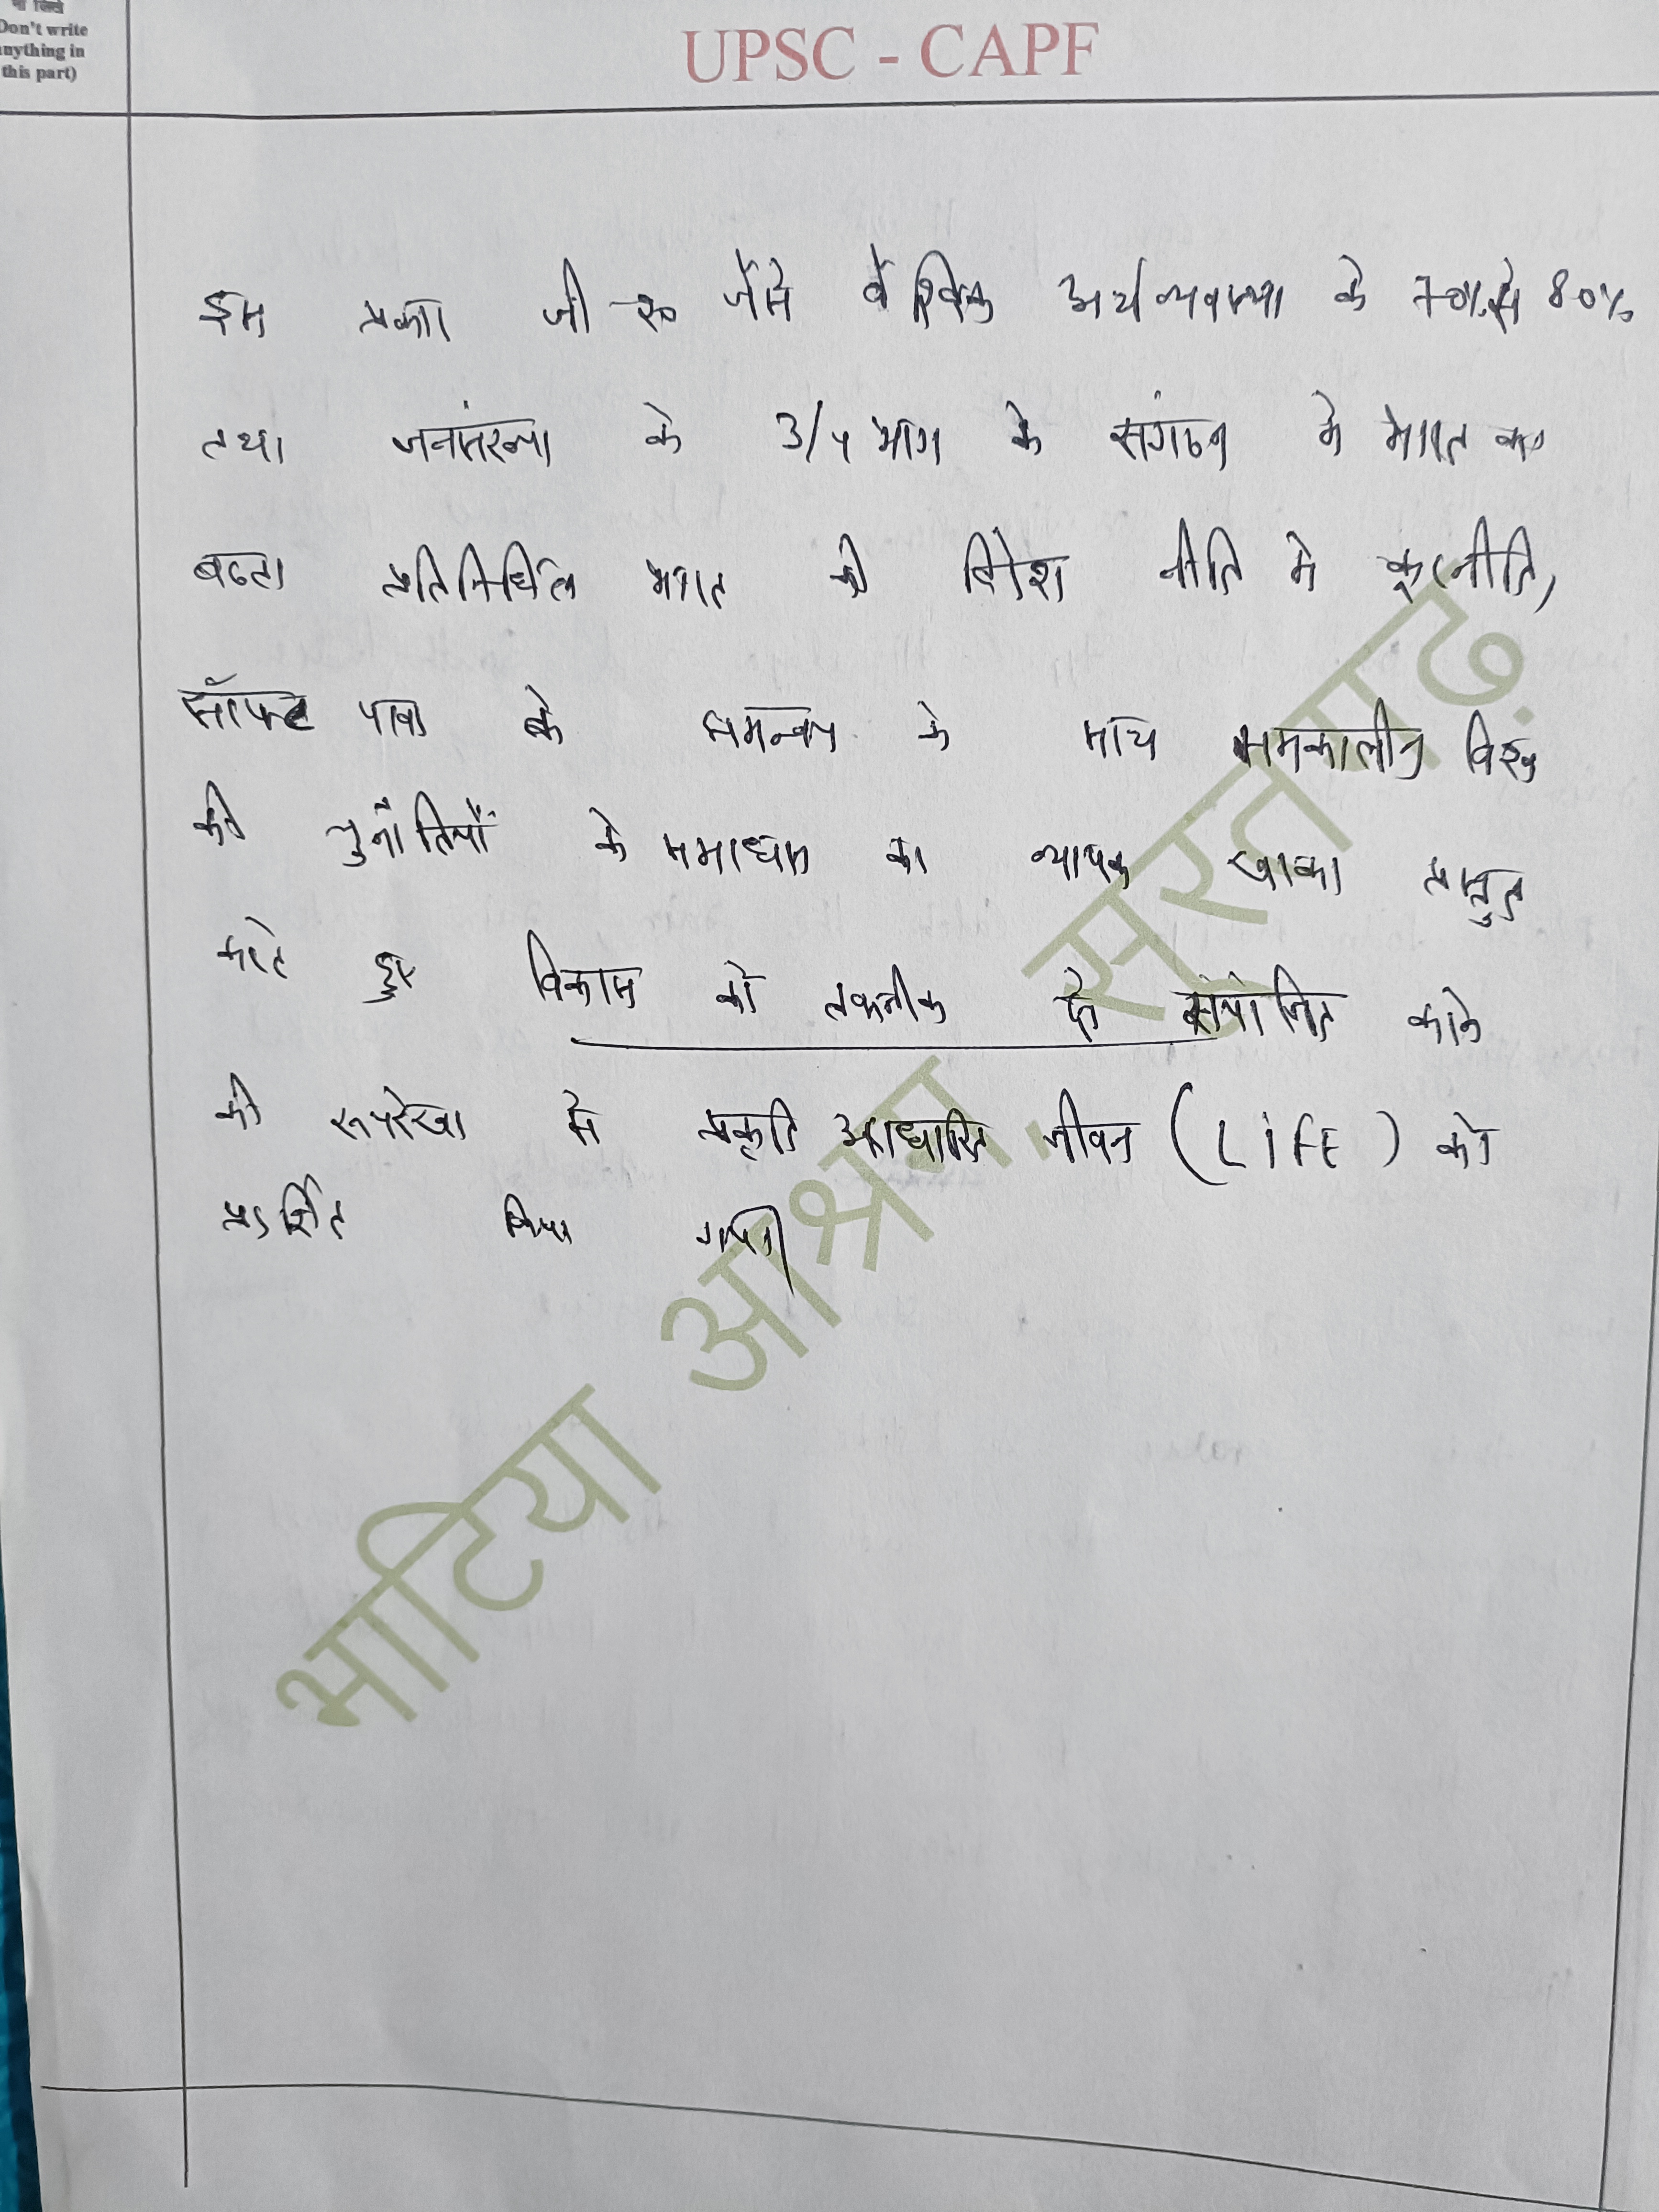 ना लिखें
Don't write
anything in
this part)
UPSC - CAPF
इस प्रकार जी-20 जैसे वैश्विक अर्थव्यवस्था के 70% से 80%
तथा जनसंख्या के 3/4 भाग के संगठन में भारत का
बढता प्रतिनिधित्व भारत की विदेश नीति में कूटनीति,
सॉफ्ट पावर के समन्वय के साथ समकालीन विश्व
की चुनौतियों के समाधान का व्यापक खाका प्रस्तुत
करते हुए विकास को तकनीक से संयोजित करने
की रूपरेखा में प्रकृति आधारित जीवन (LiFE) को
प्रदर्शित किया गया।
भाटिया आश्रम, सूरतगढ़